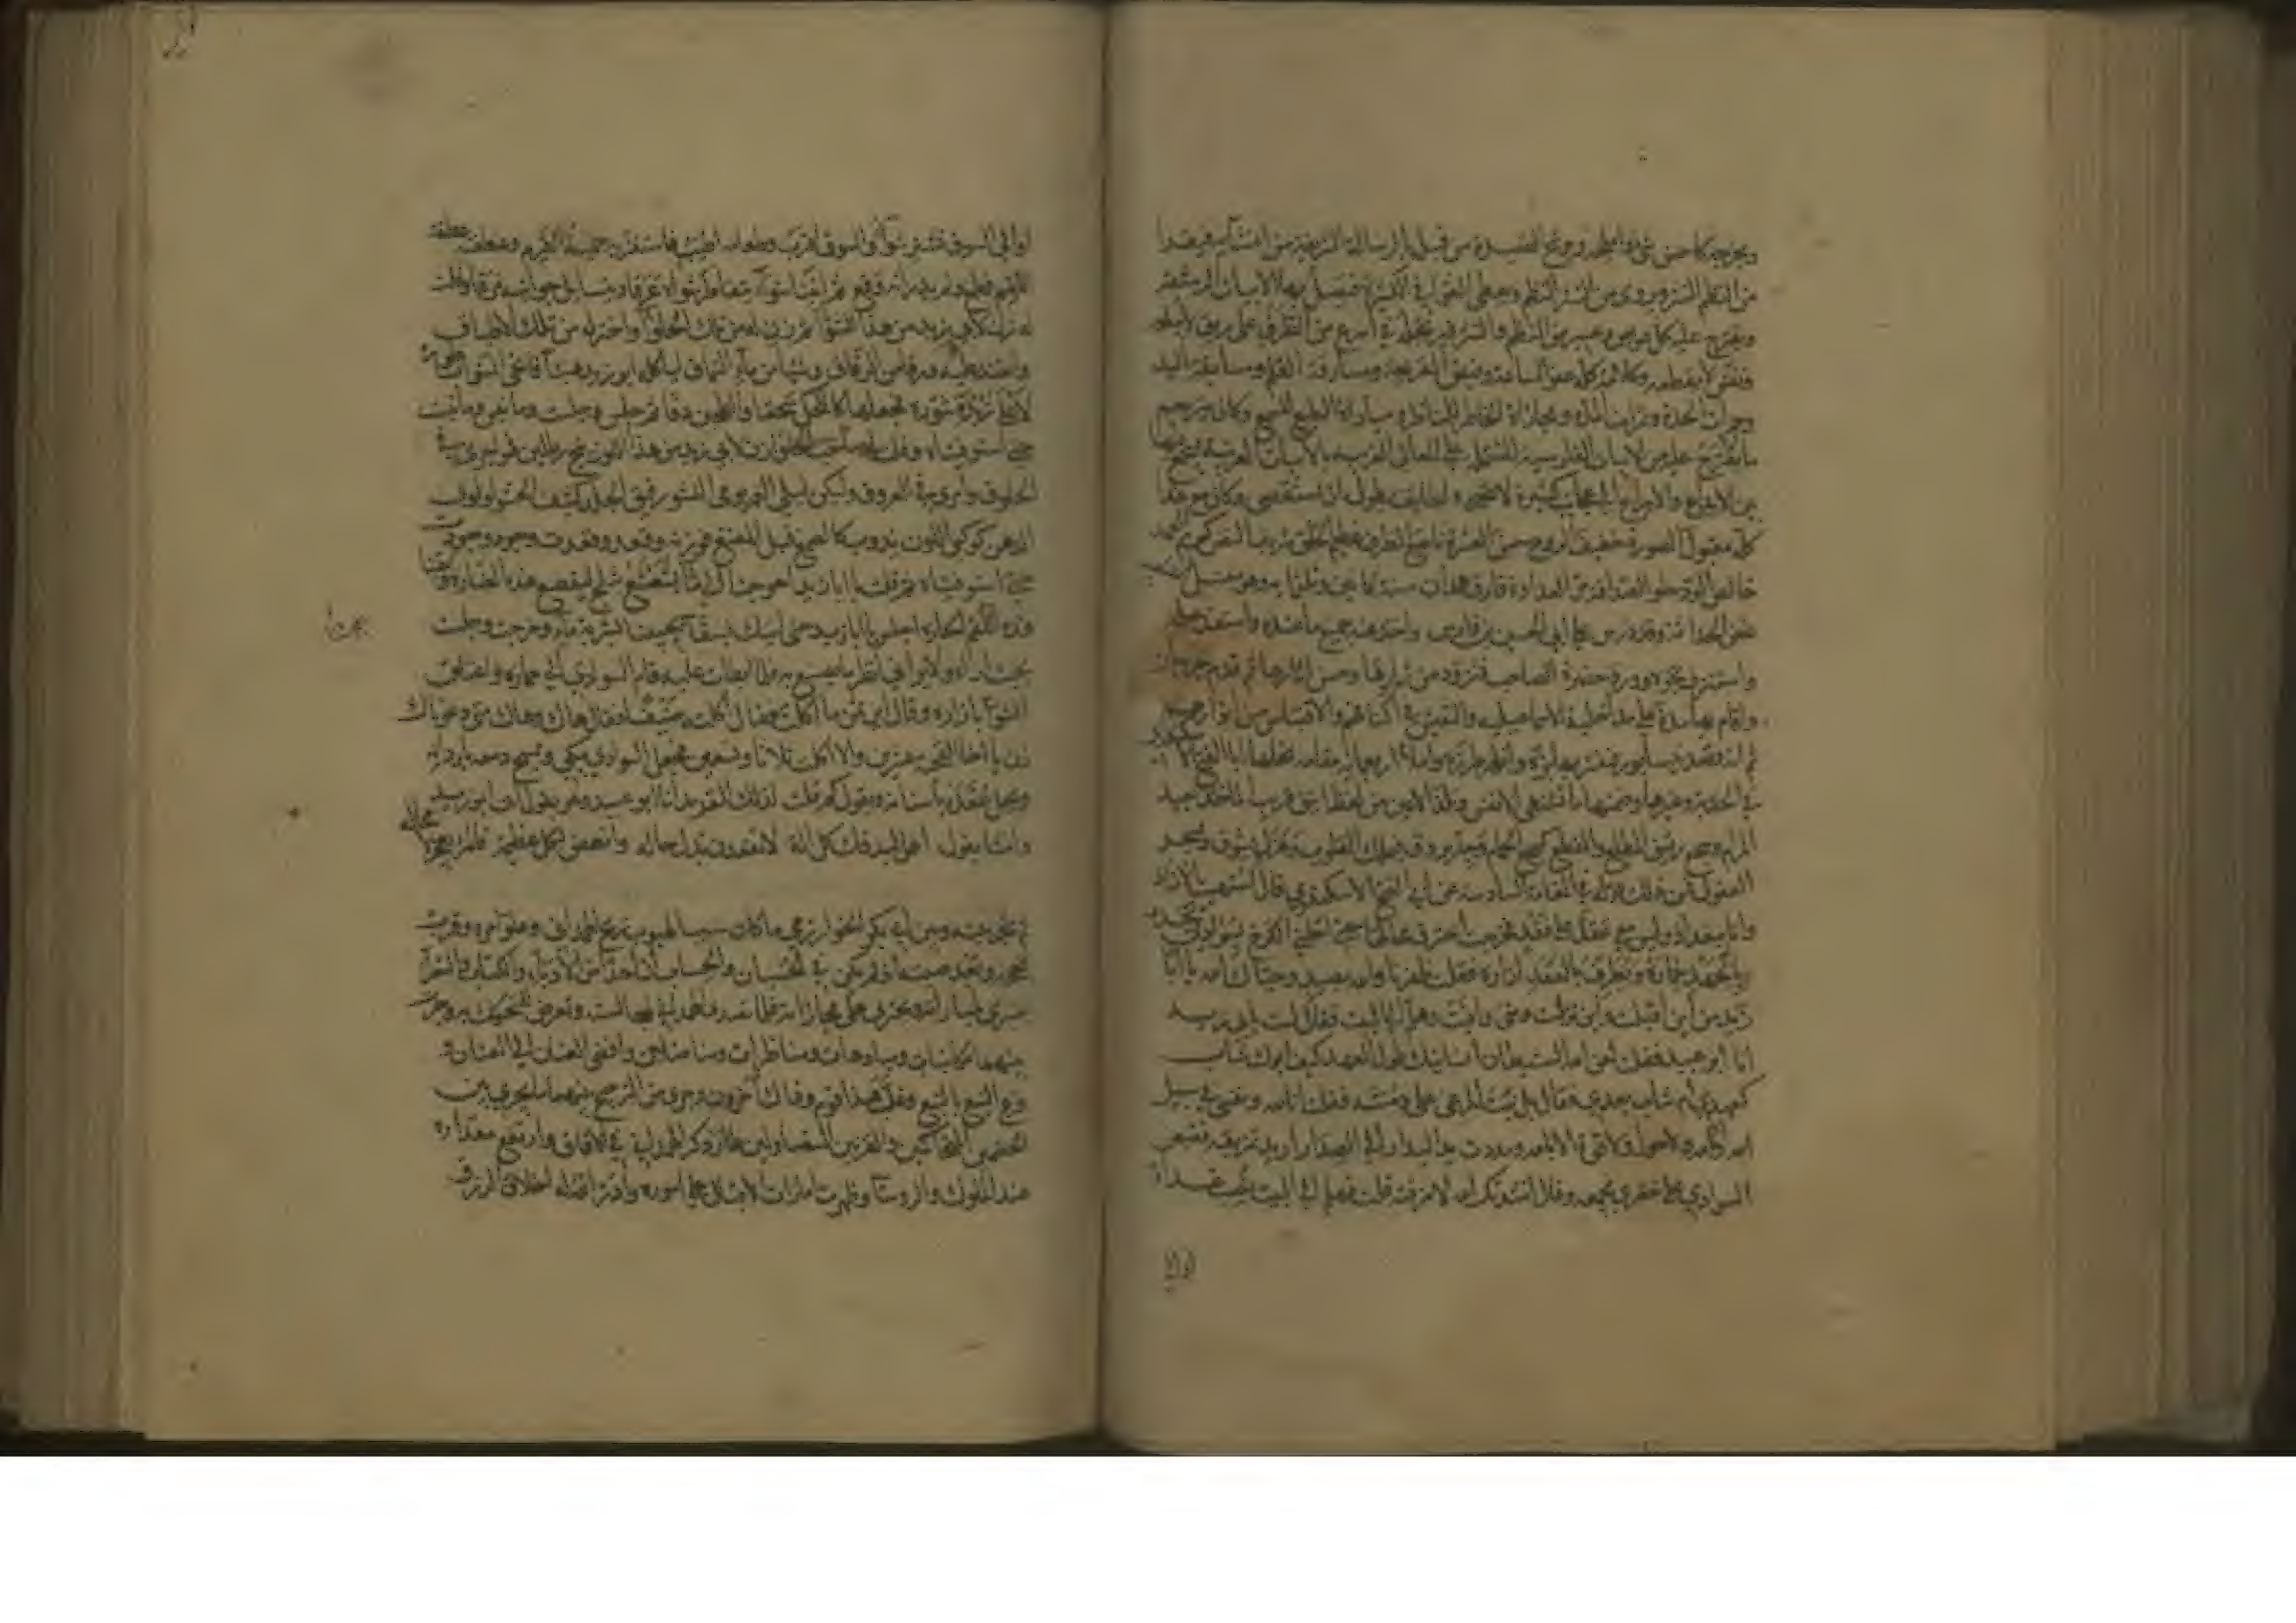 ويخرجه كاحسن شيء واملحه ويوشح القصيدة من قبله بالرسالة الشريفة من انشائه فيقرا
من النظم النثر ويروي من النثر النظم ويعطي القوافي الكثيرة فيصل بها الابيات الرشيقة
ويقترح عليه كل عويص وعسير من النظم والنثر فيرتجله في اسرع من الطرف على ريق لا يبلعه
ونفس لا يقطعه وكلامه كله عفو الساعة وفيض القريحة ومسارقة القلم ومسابقة اليد
وجمرات الحدة وثمرات المدة ومجاراة الخاطر للناظر ومباراة الطبع للسمع وكان يترجم
ما يقترح عليه من الابيات الفارسية المشتملة على المعاني الغريبة بالابيات العربية فيجمع فيها
بين الابداع والاسراع الى عجائب كثيرة لا تحصى ولطايف يطول ان تستقصى وكان مع هذا
كله مقبول الصورة خفيف الروح حسن العشرة ناصع الظرف عظيم الخلق شريف النفس كريم العهد
خالص الود حلو الصداقة مر العداوة فارق همذان سنة وهو مقتبل الشبيبة
غض الحداثة وقد درس على ابي الحسين بن فارس واخذ عنه جميع ما عنده واستنفد علمه
واستنزف بحره وورد حضرة الصاحب فتزود من ثمارها وحسن اثارها ثم قدم جرجان
واقام بها مدة على مداخلة الاسماعيلية والتعيش في اكنافهم والاقتباس من انوارهم
ثم انه قصد نيسابور فنشر بها بزه واظهر طرزه واملا اربعماية مقامة نحلها ابا الفتح الاسكندري
في الكدية وغيرها وضمنها ما تشتهي الانفس وتلذ الاعين من لفظ انيق قريب الماخذ بعيد
المرام وسجع رشيق المطلع والمقطع كسجع الحمام وجد يروق فيملك القلوب وهزل يشوق فيسحر
العقول فمن ذلك قوله في المقامة السادسة عن ابي الفتح الاسكندري قال اشتهيت الازاذ
وانا ببغداد وليس معي عقد على نقد فخرجت اعترف محاله حتى احلني الكرخ بسوادي يحدو
بالجهد حماره ويطرف بالعقد ازاره فقلت ظفرنا والله بصيد وحياك الله يا ابا
زيد من اين اقبلت واين نزلت ومتى وافيت وهلم الى البيت فقال لست بابي زيد
انا ابو عبيد فقلت لعن الله الشيطان انسانيك طول العهد كيف ابوك شاب
كعهدي ام شاب بعدي فقال بل نبت المرعى على دمنته فقلت انا لله ونحن في سبيل
الله ولا حول ولا قوة الا بالله ومددت يد البدار الى الصدار اريد تمزيقه فقبض
السوادي على خصري بجمعه وقال نشدتك الله لا مزقته قلت فهلم الى البيت نصب غداء
او الى
او الى السوق نشتر شواء والسوق اقرب وطعامه اطيب فاستفزته حمية القرم وعطفته عطفة
اللقم وطمع ولم يدر انه وقع ثم اتينا شواء يتقاطر شواؤه عرقا وتتسايل جوانبه مرقا وقلت
له زن لابي زيد من هذا الشواء ثم زن له من تلك الحلواء واختر له من تلك الاطباق
وانضد عليه ورقا من الرقاق وشيئا من ماء السماق لياكله ابو زيد هنيئا فانحنى الشواء
لاخذ زبدة تنوره فجعلها كالكحل سحقا وكالطحين دقا ثم جلس وجلست وما نبس وما نبست
حتى استوفيناه وقلت لصاحب الحلواء زن لابي زيد من هذا اللوزينج رطلين فهو اجرى في
الحلوق وامرى في العروق وليكن ليلي العمر يومي النشر رقيق الجلد كثيف الحشو لؤلؤي
الدهن كوكبي اللون يذوب كالصمغ قبل المضغ فوزنه وقعد وقعدت وجرد وجردت
حتى استوفيناه ثم قلت يا ابا زيد ما احوجنا الى ماء يشعشع بثلج ليقمع هذه الصارة ويفثا
هذه اللقم الحارة اجلس يا ابا زيد حتى اتيك بسقاء يجيئك بشربة ماء وخرجت وجلست
بحيث اراه ولا يراني انظر ما يصنع به فلما ابطات عليه قام السوادي الى حماره واعتلق
الشواء بازاره وقال اين ثمن ما اكلت فقال اكلته ضيفا فقال هاك وهاك متى دعوناك
زن يا اخا القحبة عشرين والا اكلت ثلاثا وتسعين فجعل السوادي يبكي ويمسح دمعه باردانه
ويحل عقده باسنانه ويقول كم قلت لذلك القريد انا ابو عبيد وهو يقول انت ابو زيد
وانشا يقول اعمل لرزقك كل اله لا تقعدن بذل حاله وانهض بكل عظيمة فالمرء يعجز لا محاله
ثم شجر بينه وبين ابي بكر الخوارزمي ما كان سببا لهبوب ريح الهمذاني وعلو امره وقرب
نجحه وبعد صيته اذ لم يكن في الحسبان والحساب ان احدا من الادباء والكتاب والشعراء
ينبري لمباراته ويجتري على مجاراته فلما تصدى الهمذاني لمساجلته وتعرض للتحكك به وجرت
بينهما مكاتبات ومباهات ومناظرات ومناضلات وافضى العنان الى العنان و
قرع النبع بالنبع وغلب هذا قوم وذاك آخرون وجرى من الترجيح بينهما ما يجري بين
الخصمين المتحاكمين والقرنين المتصاولين طار ذكر الهمذاني في الآفاق وارتفع مقداره
عند الملوك والروسآ وظهرت امارات الاقبال على اموره وادر الله له اخلاف الرزق